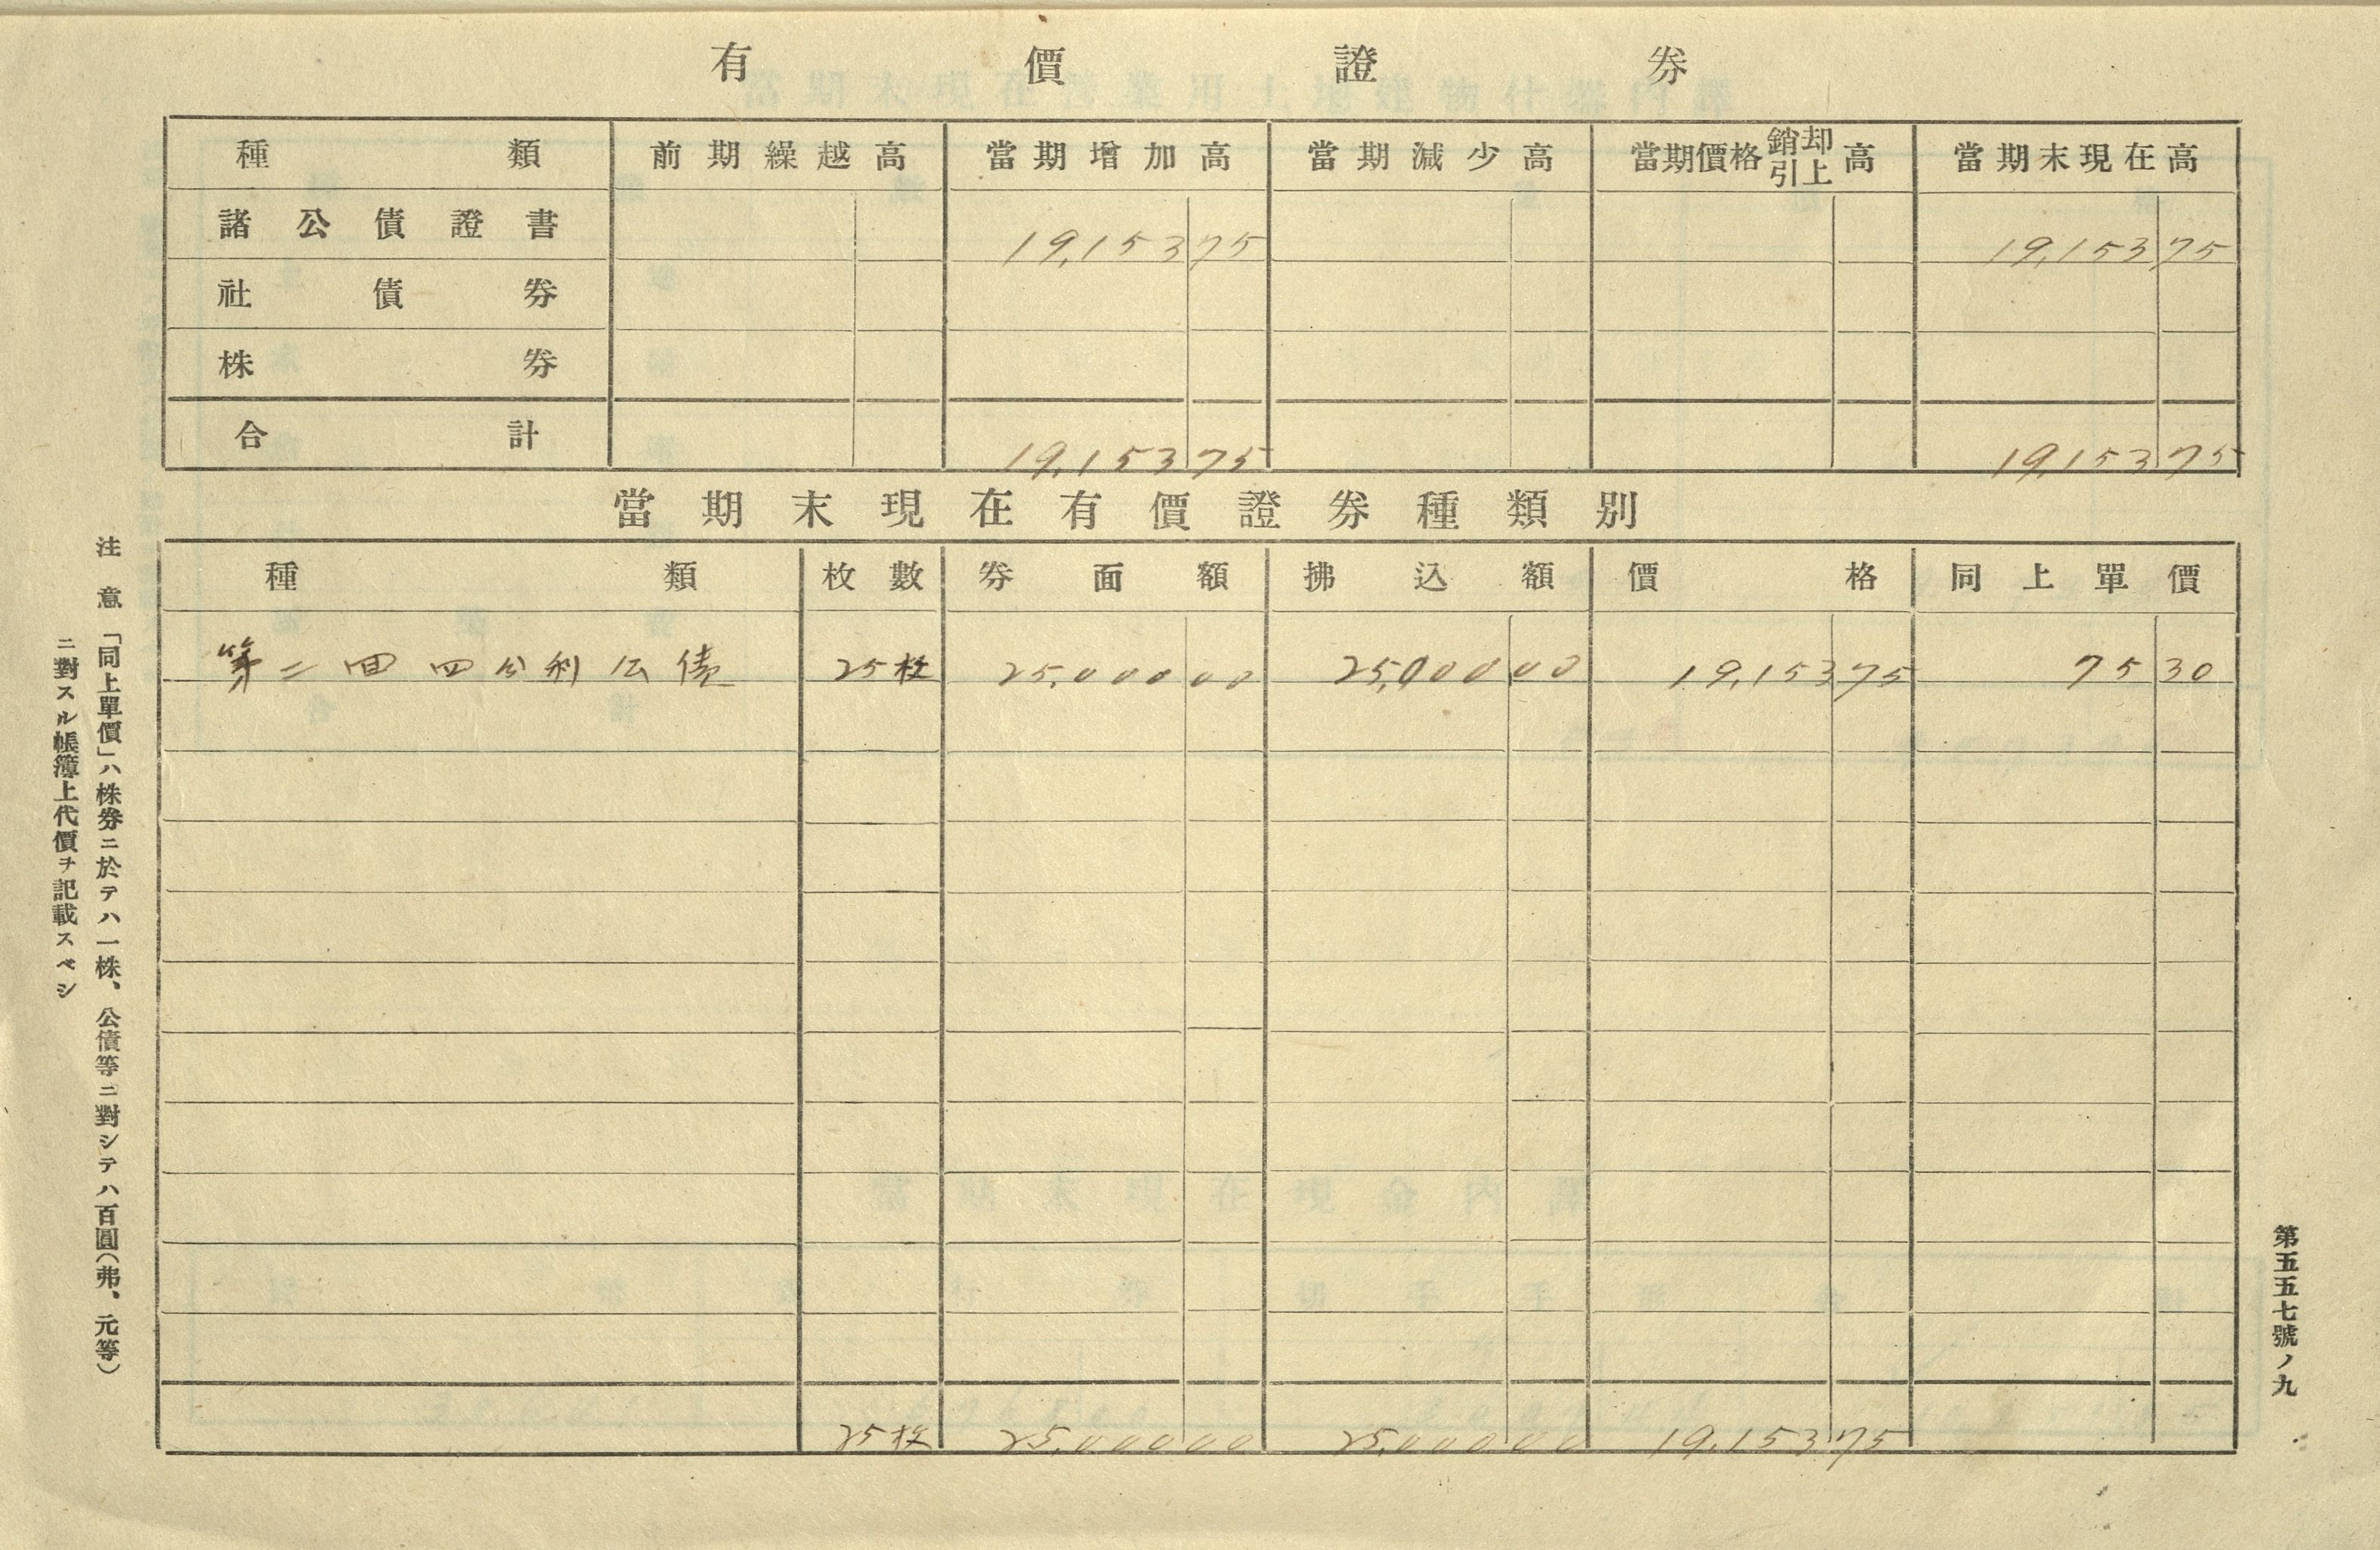 有價證券
種類 前期繰越高 當期增加高 當期減少高 當期價格銷却引上高 當期末現在高
諸公債證書 19,153 75 19,153 75
社債券
株券
合計 19,153 75 19,153 75
當期末現在有價證券種類別
種類 枚數 券面額 拂込額 價格 同上單價
第二回四分利公債 25枚 25,000 00 25,000 00 19,153 75 75 30
25枚 25,000 00 25,000 00 19,153 75
注意「同上單價」ハ株券ニ於テハ一株、公債等ニ對シテハ百圓(弗、元等)
ニ對スル帳簿上代價ヲ記載スベシ
第五五七號ノ九